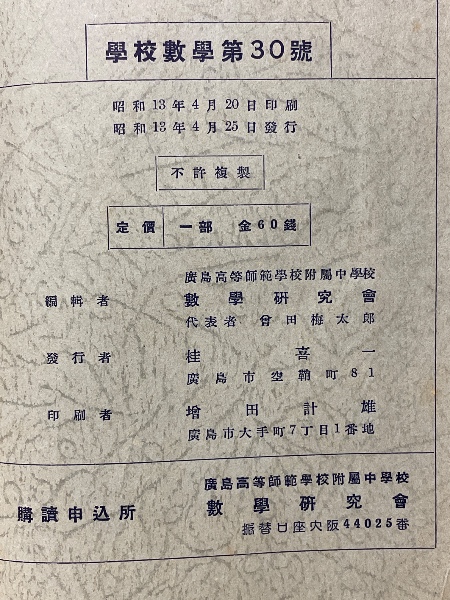 學校數學第30號
昭和13年4月20日印刷
昭和13年4月25日發行
不許複製
定價 一部 金60錢
廣島高等師範學校附屬中學校
編輯者 數學研究會
代表者 曾田梅太郎
發行者 桂喜一
廣島市空鞘町81
印刷者 增田計雄
廣島市大手町7丁目1番地
廣島高等師範學校附屬中學校
購讀申込所 數學研究會
振替口座大阪44025番